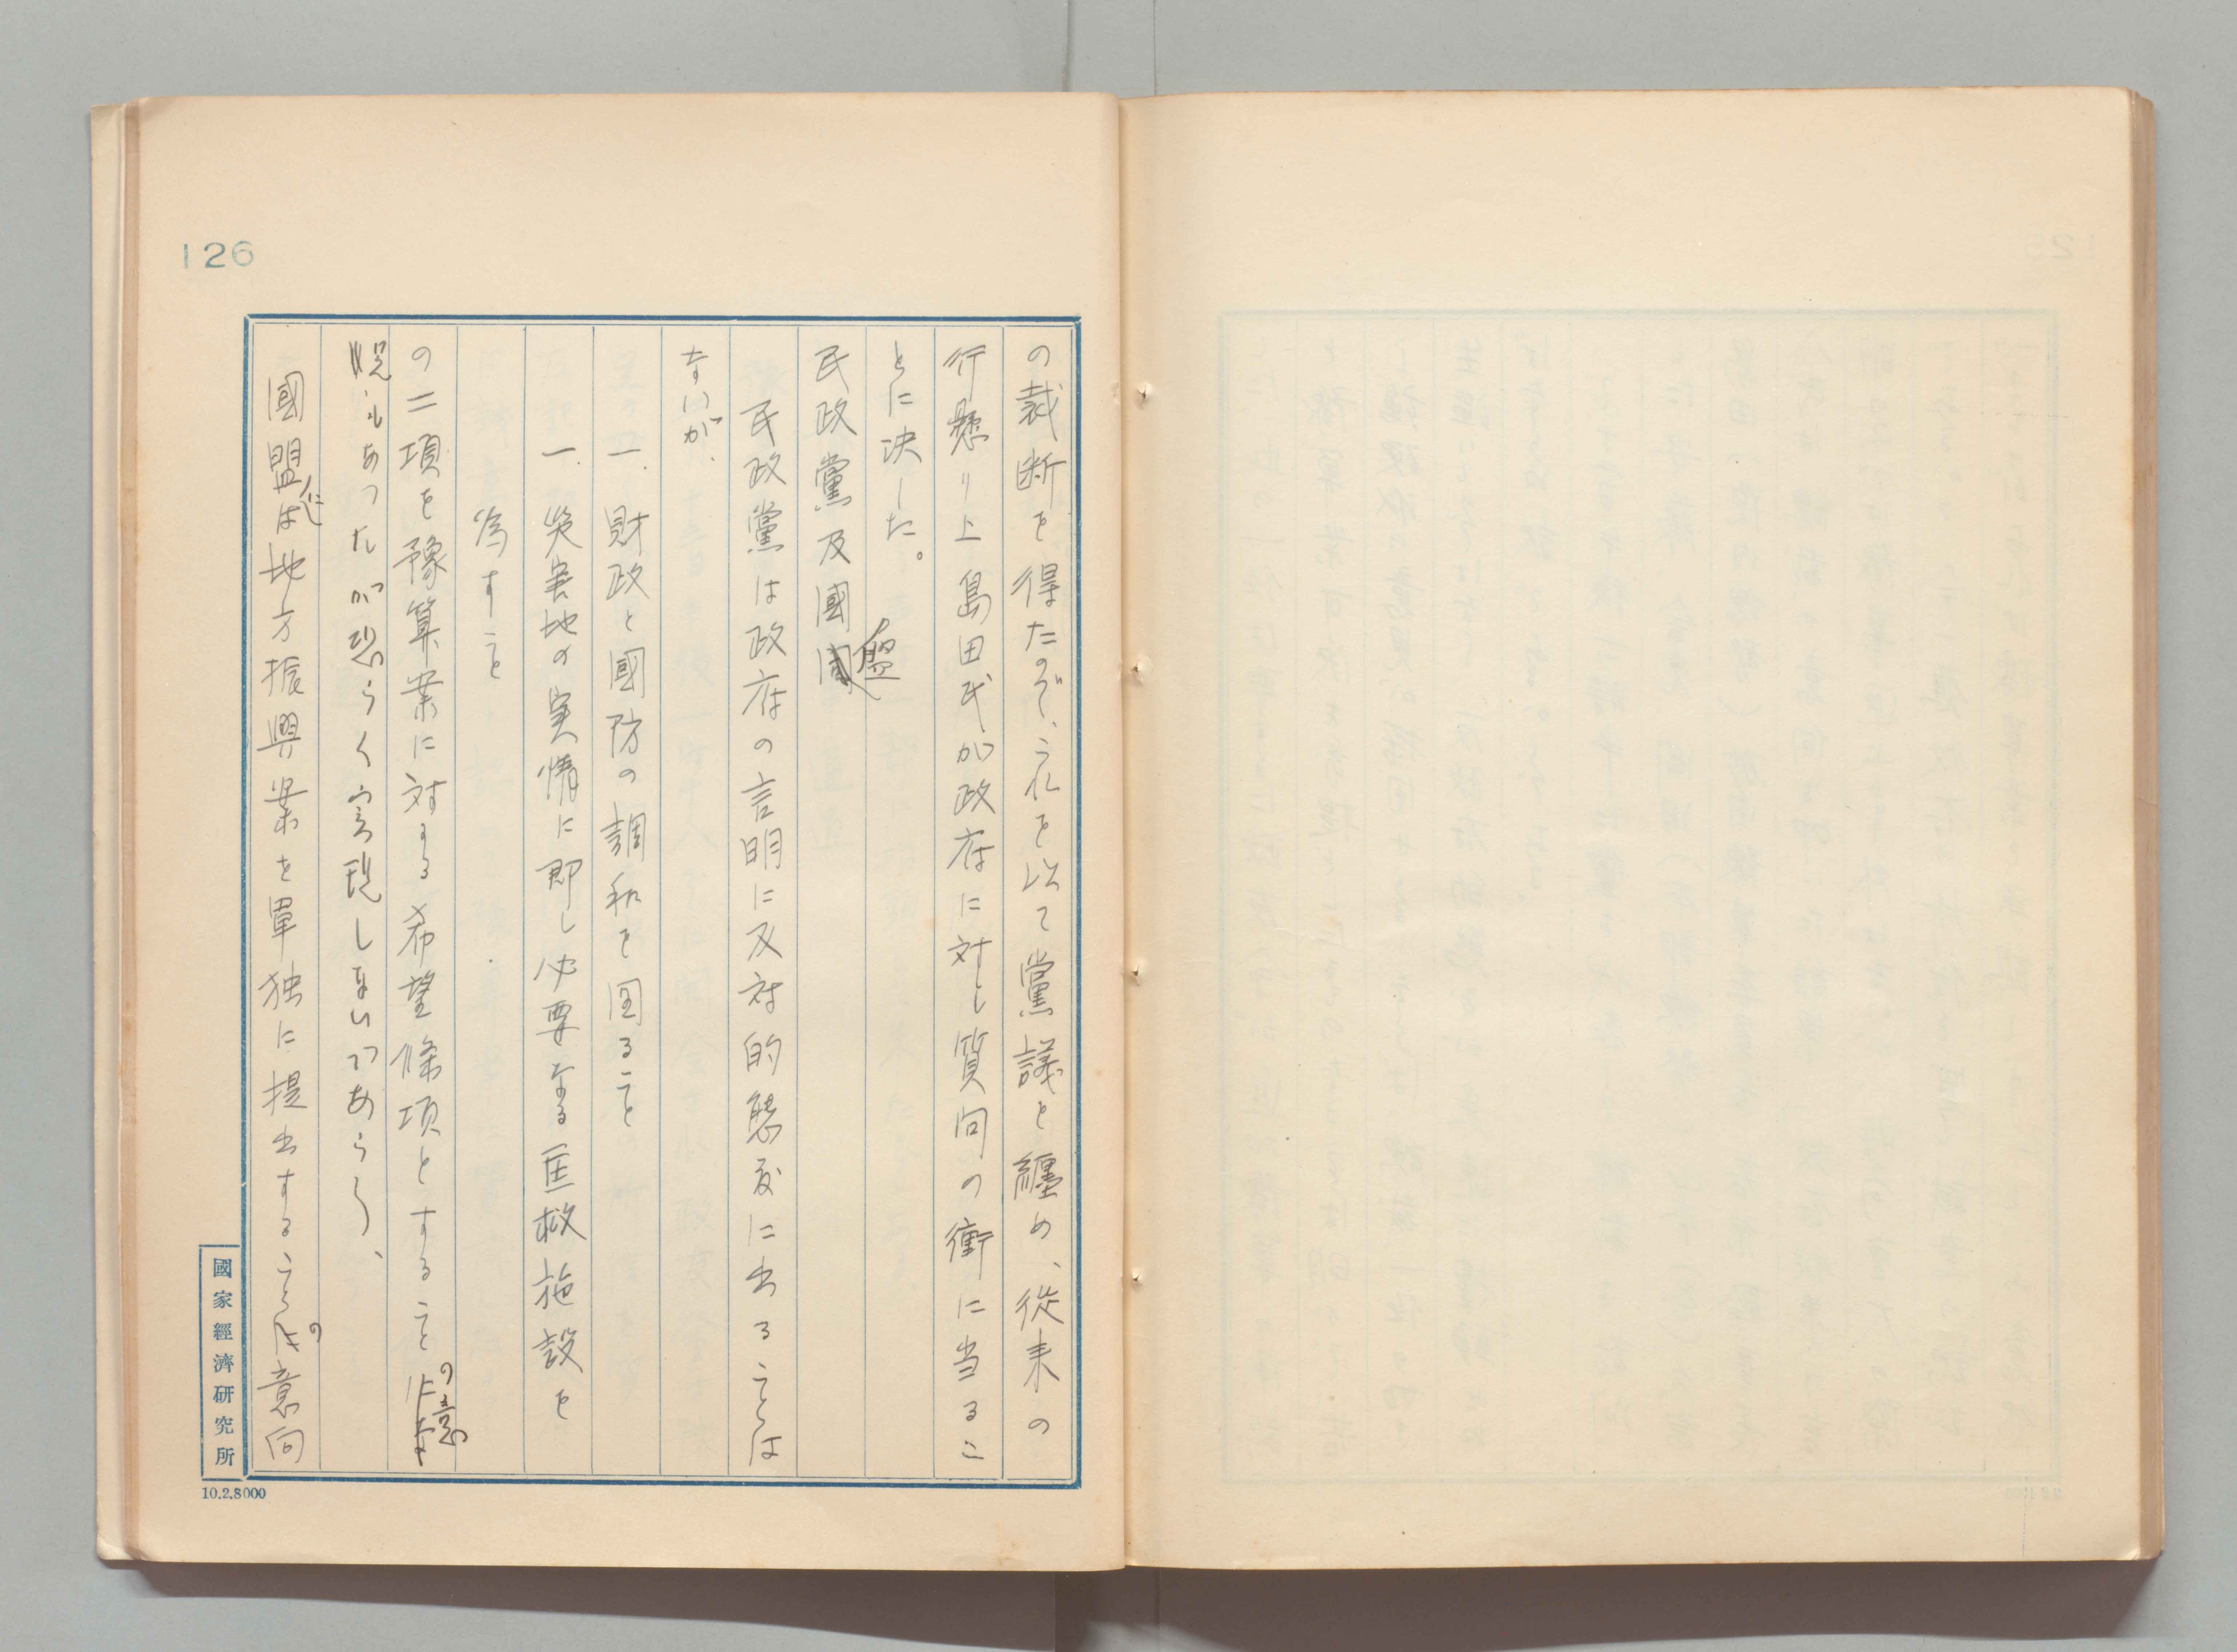 126
の裁断を得たので、これを以て黨議を纏め、從来の
行懸り上島田氏が政府に対し質問の衝に当るこ
とに決した。
民政黨及國盟
民政黨は政府の言明に反対的態度に出ることは
ないが、
一、財政と國防の調和を図ること
一、災害地の実情に即し必要なる匡救施設を
為すこと
の二項を豫算案に対する希望條項とすることの意
もあつたが恐らく実現しないであらう、
國盟には地方振興案を單独に提出することの意向
國家經濟研究所
10.2.8000